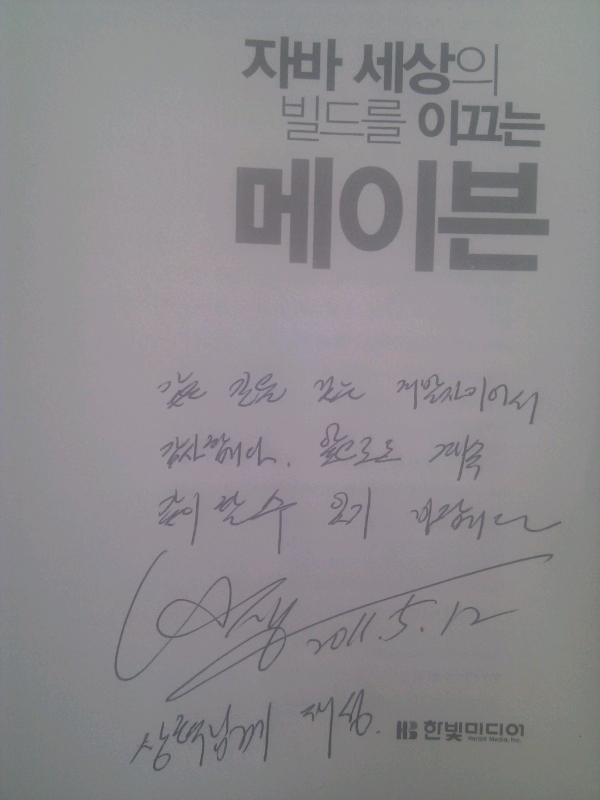 자바 세상의
빌드를 이끄는
메이븐
같은 길을 걷는 개발자이어서
감사합니다. 앞으로도 계속
같이 할 수 있기 바랍니다
2011.5.12
한빛미디어
Hanbit Media, Inc.